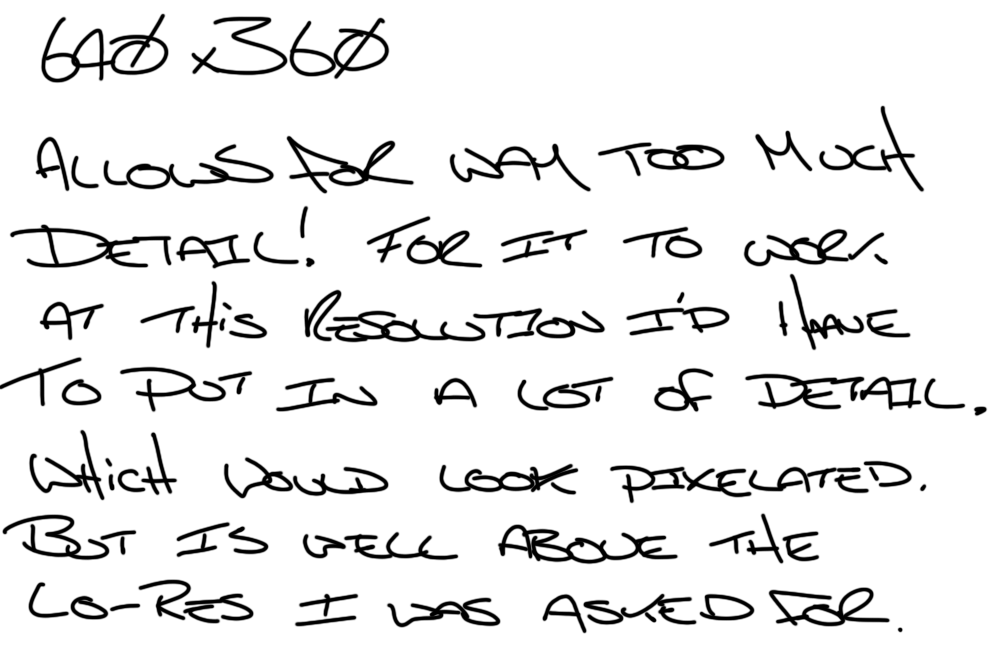 640 x 360
ALLOWS FOR WAY TOO MUCH
DETAIL! FOR IT TO WORK
AT THiS RESOLUTION I'D HAVE
TO PUT IN A LOT OF DETAIL.
WHiCH WOULD LOOK PIXELATED.
BUT IS WELL ABOVE THE
LO-RES I WAS ASKED FOR.